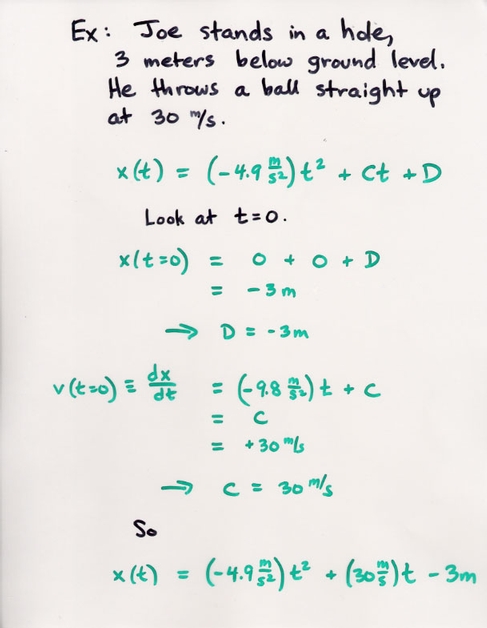 Ex: Joe stands in a hole,
3 meters below ground level.
He throws a ball straight up
at 30 m/s.
x(t) = (-4.9 m/s²) t² + Ct + D
Look at t=0.
x(t=0) = 0 + 0 + D
= -3m
→ D = -3m
v(t=0) ≡ dx/dt = (-9.8 m/s²) t + C
= C
= +30 m/s
→ C = 30 m/s
So
x(t) = (-4.9 m/s²) t² + (30 m/s) t - 3m